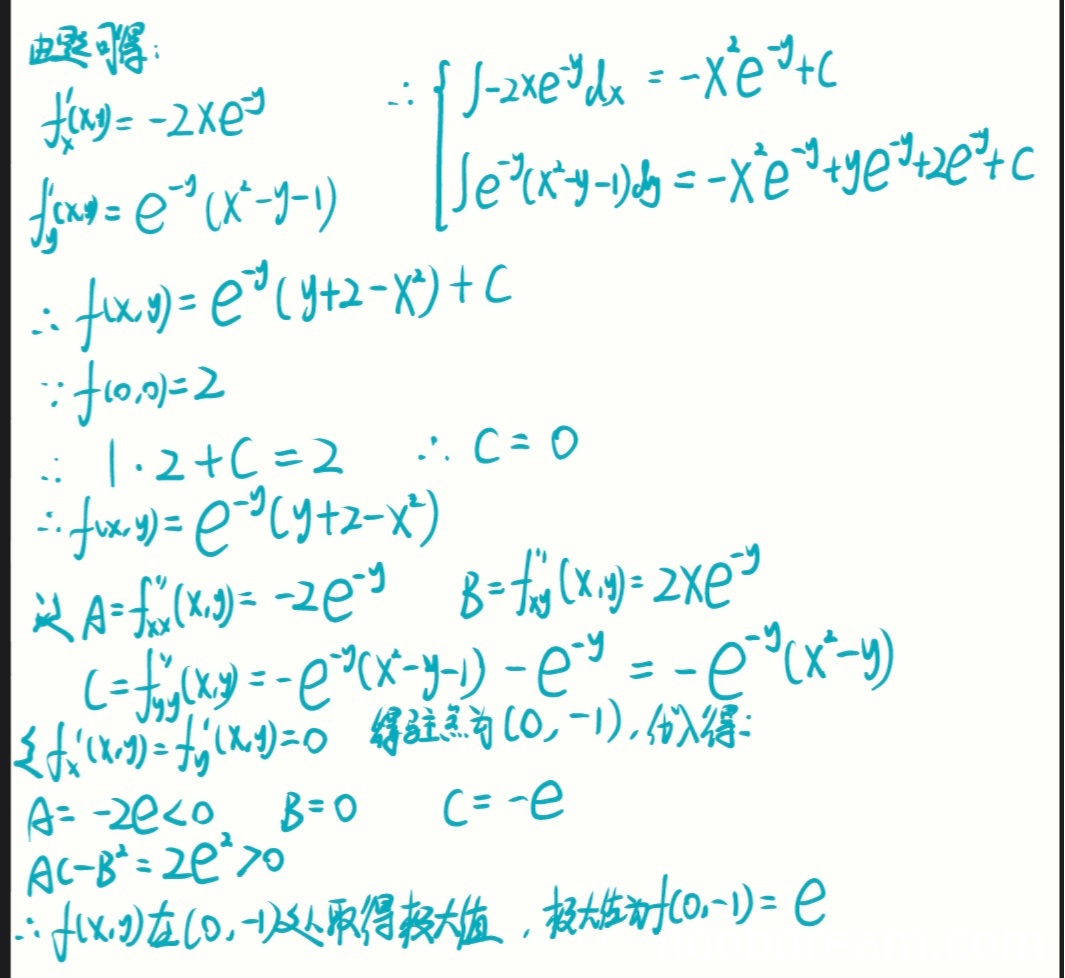 由题可得:
f'x(x,y) = -2xe^{-y}
∴ { ∫-2xe^{-y}dx = -x²e^{-y}+C
f'y(x,y) = e^{-y}(x²-y-1)
∫e^{-y}(x²-y-1)dy = -x²e^{-y}+ye^{-y}+2e^{-y}+C
∴ f(x,y) = e^{-y}(y+2-x²)+C
∵ f(0,0)=2
∴ 1·2+C=2 ∴ C=0
∴ f(x,y) = e^{-y}(y+2-x²)
设 A=f''xx(x,y)= -2e^{-y} B=f''xy(x,y)=2xe^{-y}
C=f''yy(x,y)=-e^{-y}(x²-y-1)-e^{-y} = -e^{-y}(x²-y)
令f'x(x,y)=f'y(x,y)=0 得驻点为(0,-1),代入得:
A=-2e<0 B=0 C=-e
AC-B²=2e²>0
∴ f(x,y)在(0,-1)处取得极大值,极大值为f(0,-1)=e